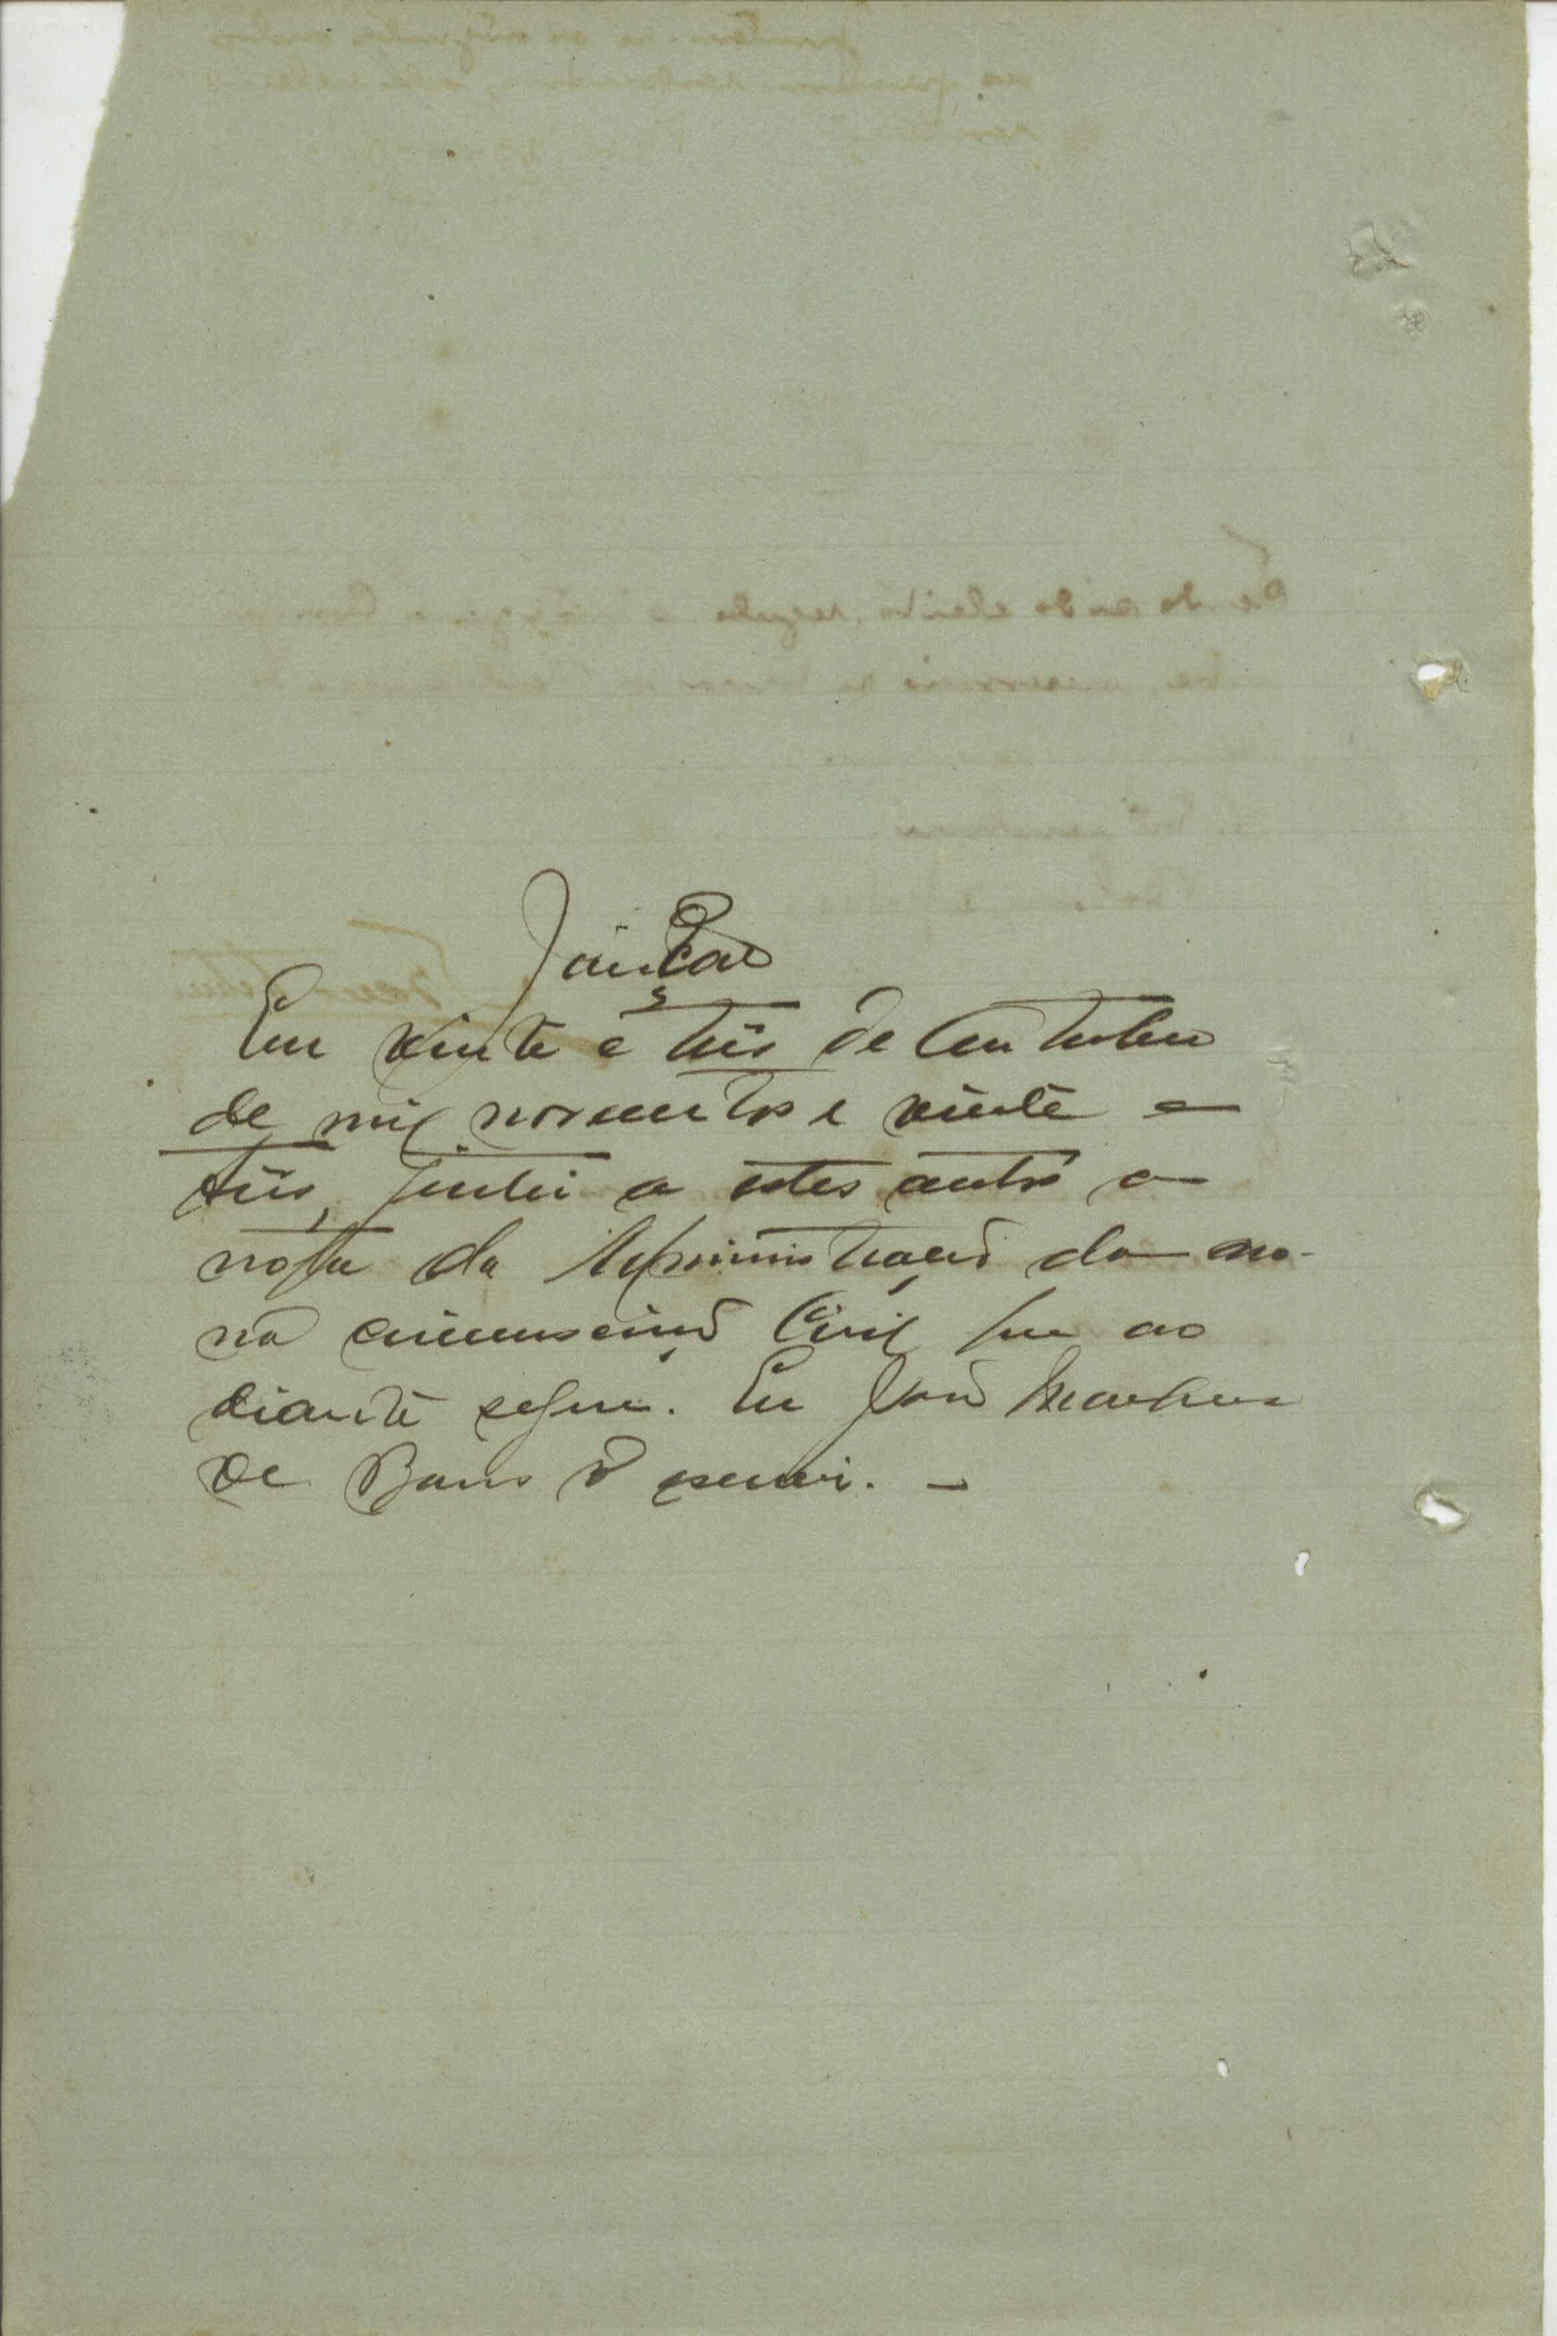 Junção
Em vinte e três de Outubro
de mil novecentos e vinte e
três, juntei a estes autos a
nota da Administração da no-
na circunscrição Civil que ao
diante segue. Eu João Marques
de Barros o escrevi. –